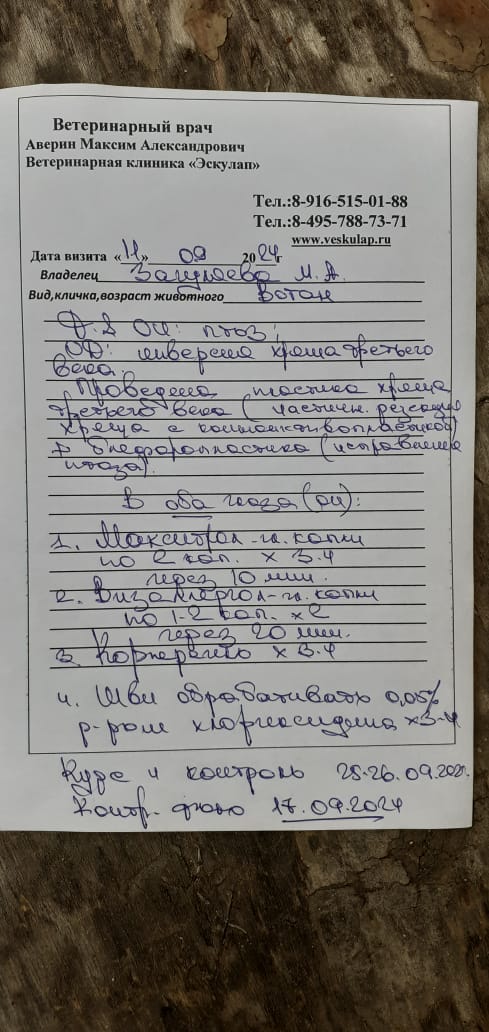 Ветеринарный врач
Аверин Максим Александрович
Ветеринарная клиника «Эскулап»
Тел.:8-916-515-01-88
Тел.:8-495-788-73-71
www.veskulap.ru
Дата визита «11» 09 2024г
Владелец М. А.
Вид,кличка,возраст животного Вотан
OU: птоз;
OD: инверсия хряща третьего
века.
Проведена пластика хряща
третьего века (частичн. резекция
хряща с конъюнктивопластикой)
+ блефаропластика (исправление
птоза).
В оба глаза (OU):
1. Макситрол-гл. капли
по 2 кап. х 3-4
через 10 мин.
2. Визаллергол-гл. капли
по 1-2 кап. х2
через 20 мин.
3. Корнерегель х 3-4
4. Швы обрабатывать 0,05%
р-ром хлоргексидина х3-4
Курс и контроль 25-26.09.
Контр. фото 17.09.2024